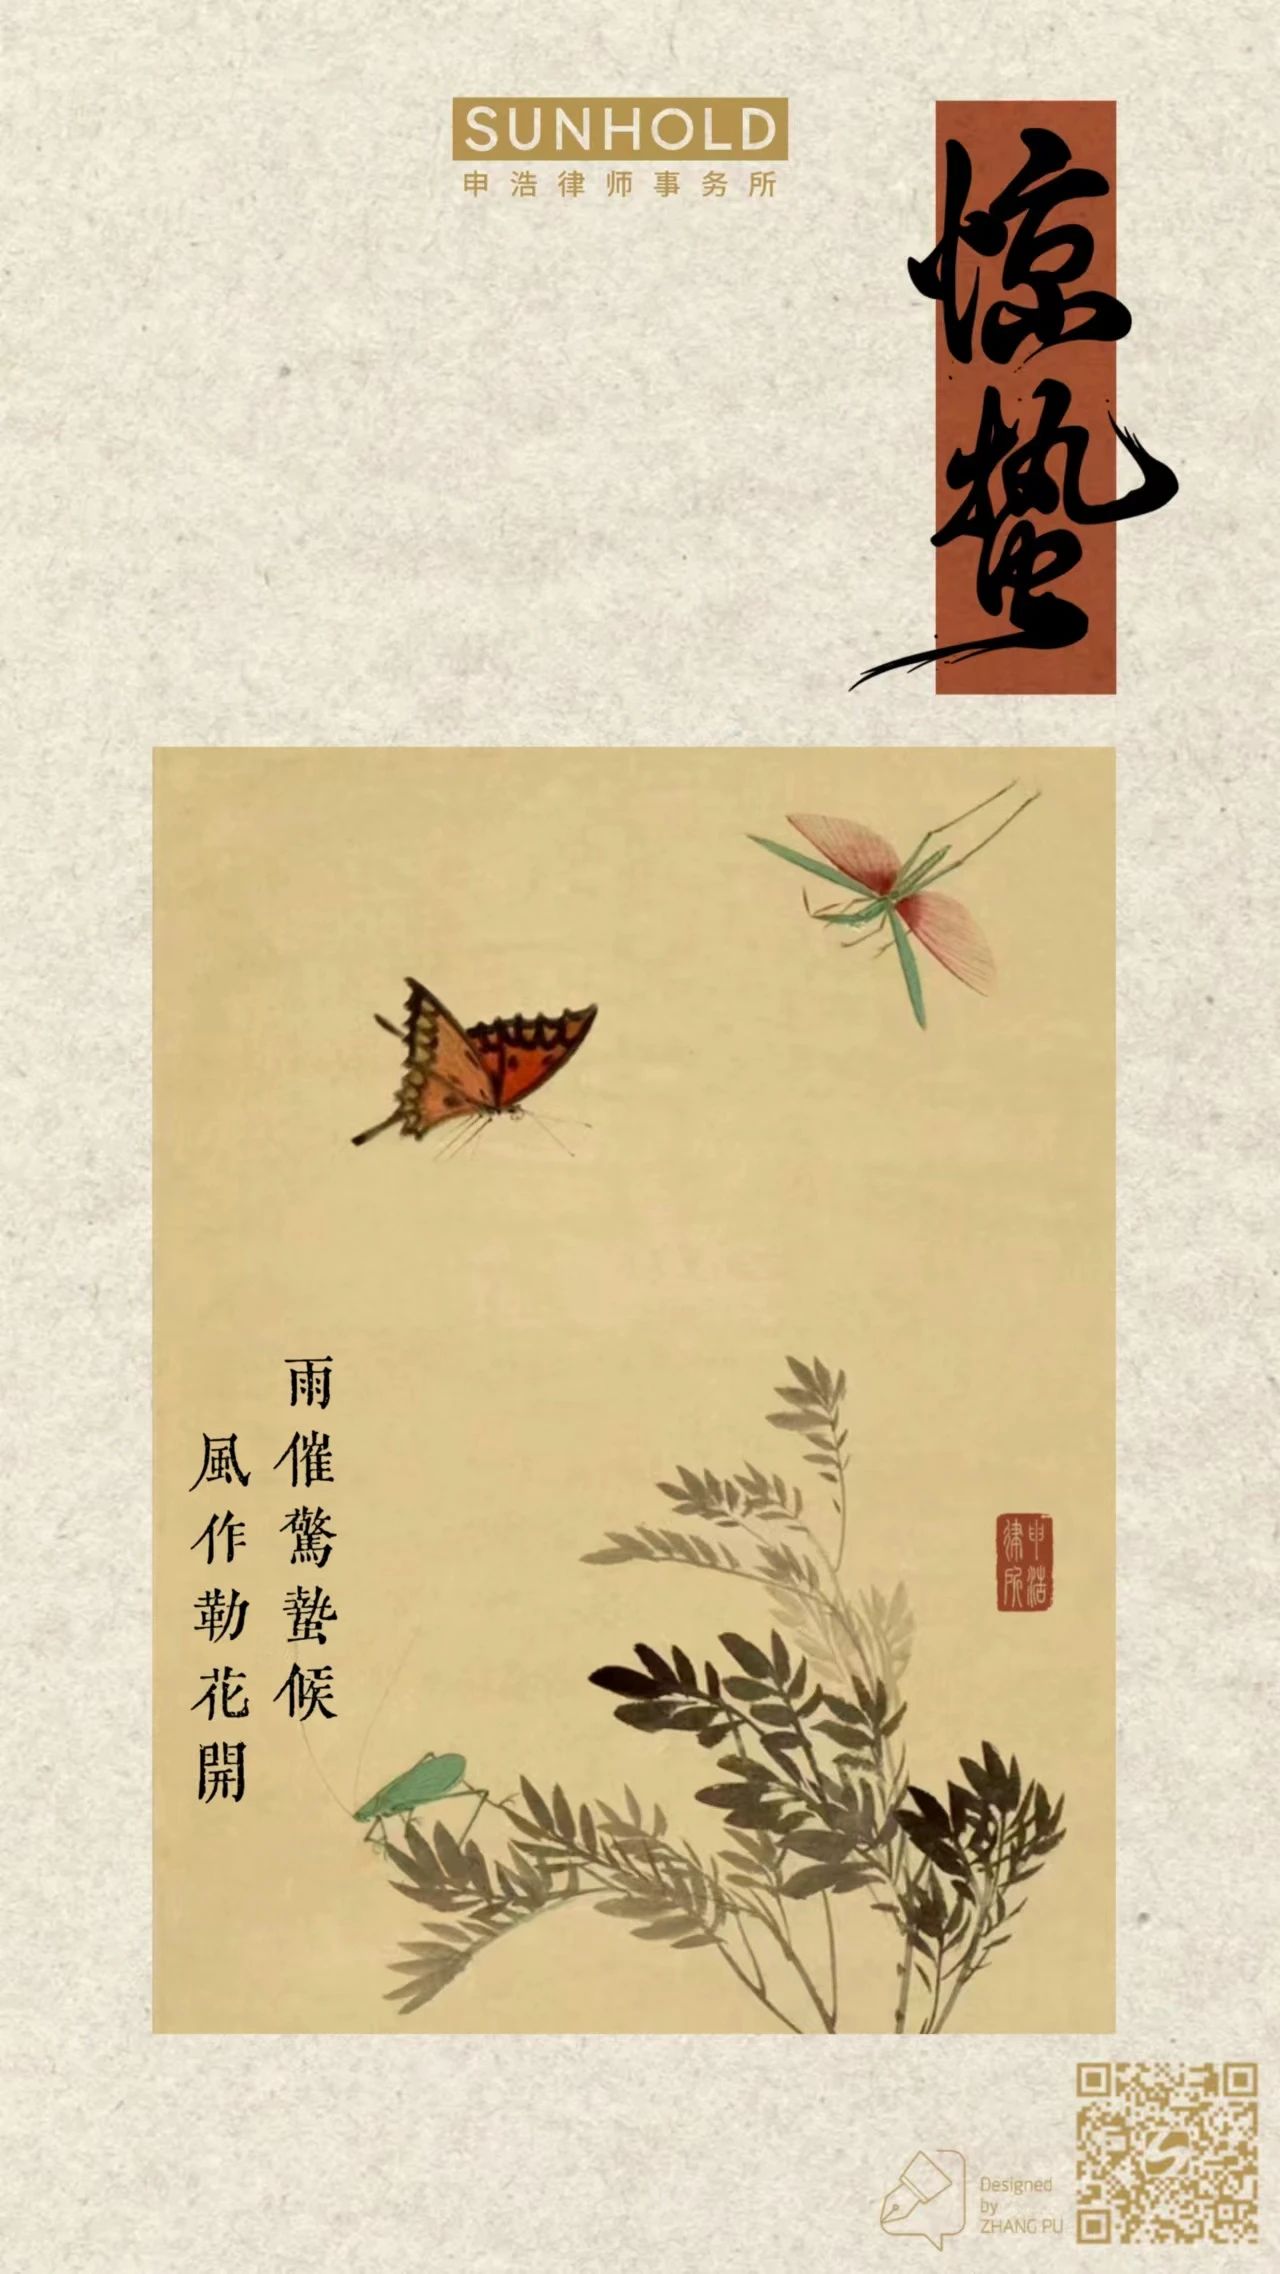 SUNHOLD
申浩律师事务所
惊蛰
雨催驚蟄候
風作勒花開
申浩
律所
Designed
by
ZHANG PU